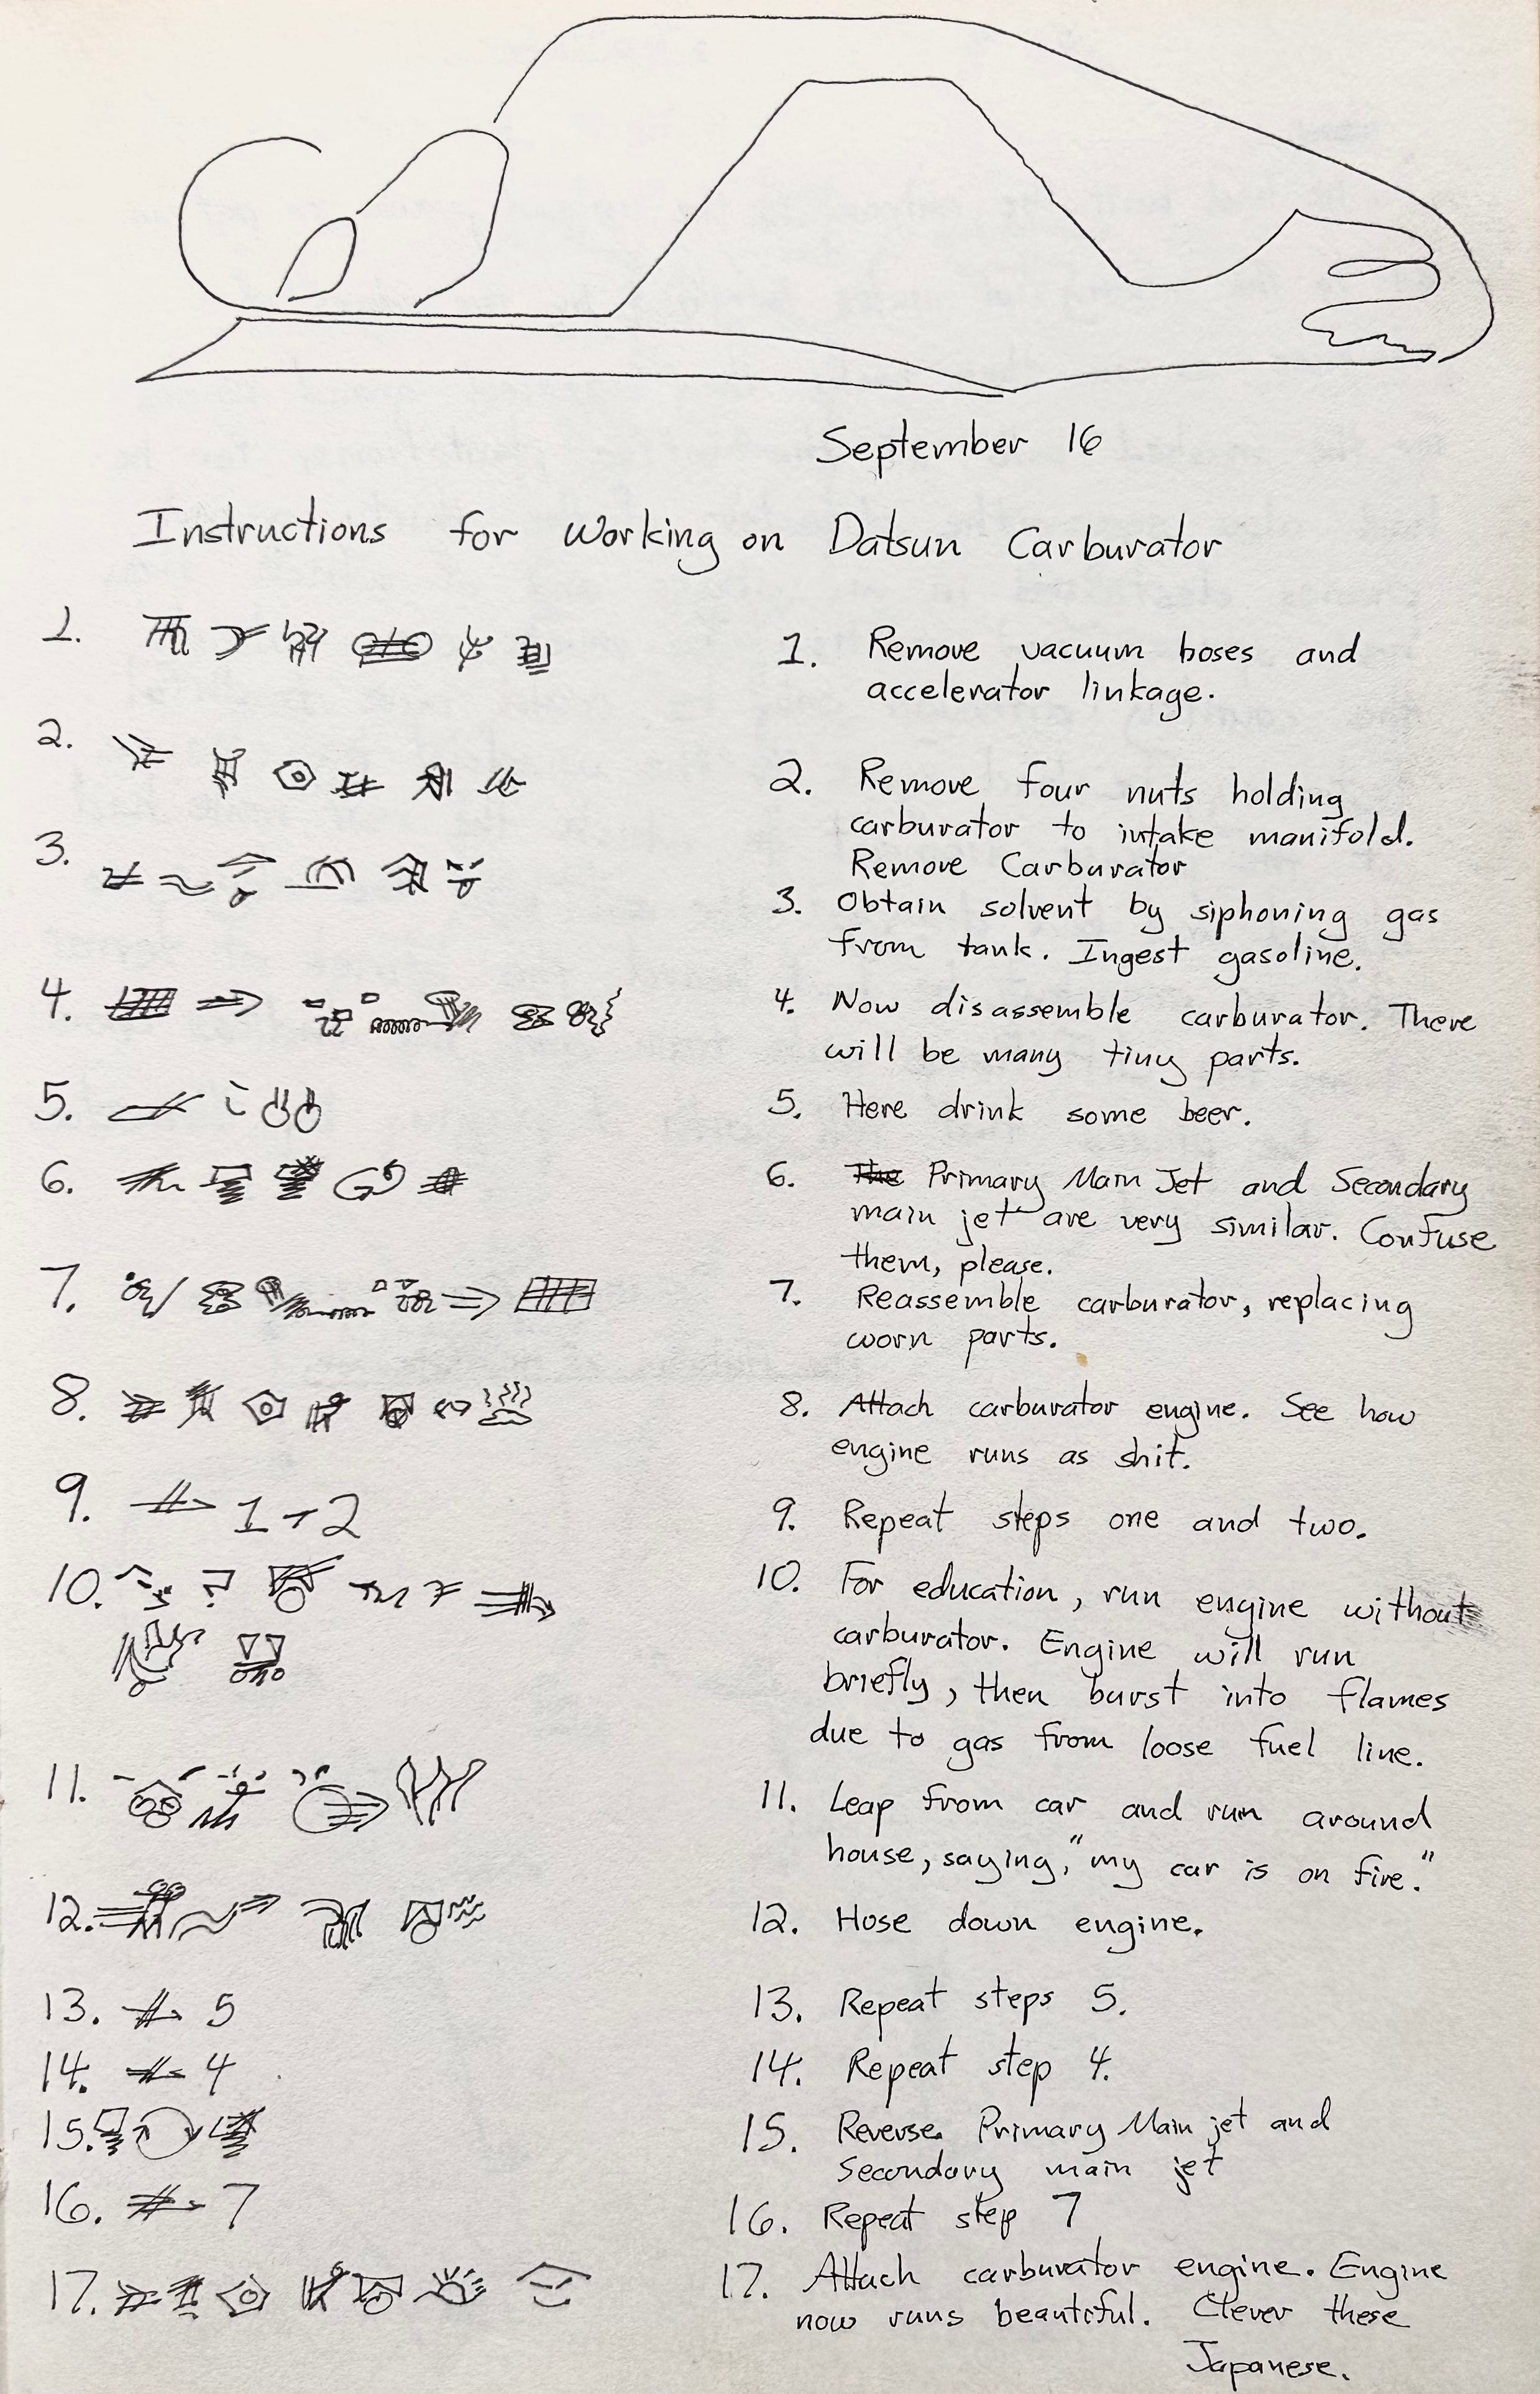 September 16
Instructions for working on Datsun Carburator
1.
1. Remove vacuum hoses and
accelerator linkage.
2.
2. Remove four nuts holding
carburator to intake manifold.
Remove Carburator
3.
3. Obtain solvent by siphoning gas
from tank. Ingest gasoline.
4.
4. Now disassemble carburator. There
will be many tiny parts.
5.
5. Here drink some beer.
6.
6. The Primary Main Jet and Secondary
main jet are very similar. Confuse
them, please.
7.
7. Reassemble carburator, replacing
worn parts.
8.
8. Attach carburator engine. See how
engine runs as shit.
9. 1 + 2
9. Repeat steps one and two.
10.
10. For education, run engine without
carburator. Engine will run
briefly, then burst into flames
due to gas from loose fuel line.
11.
11. Leap from car and run around
house, saying, "my car is on fire."
12.
12. Hose down engine.
13. 5
13. Repeat steps 5.
14. 4
14. Repeat step 4.
15.
15. Reverse Primary Main jet and
Secondary main jet
16. 7
16. Repeat step 7
17.
17. Attach carburator engine. Engine
now runs beautiful. Clever these
Japanese.